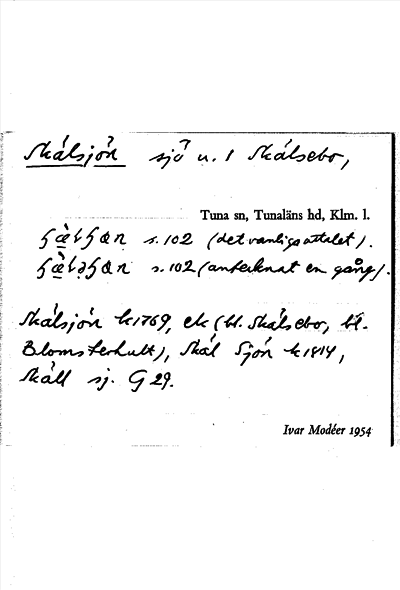 Skälsjön sjö n. I Skälsebo,
Tuna sn, Tunaläns hd, Klm. l.
s. 102 (det vanliga uttalet).
s. 102 (antecknat en gång).
Skälsjön k1769, ek (bl. Skälsebo, bl.
Blomsterhult), Skäl Sjön k1814,
Skäll sj. G 29.
Ivar Modéer 1954